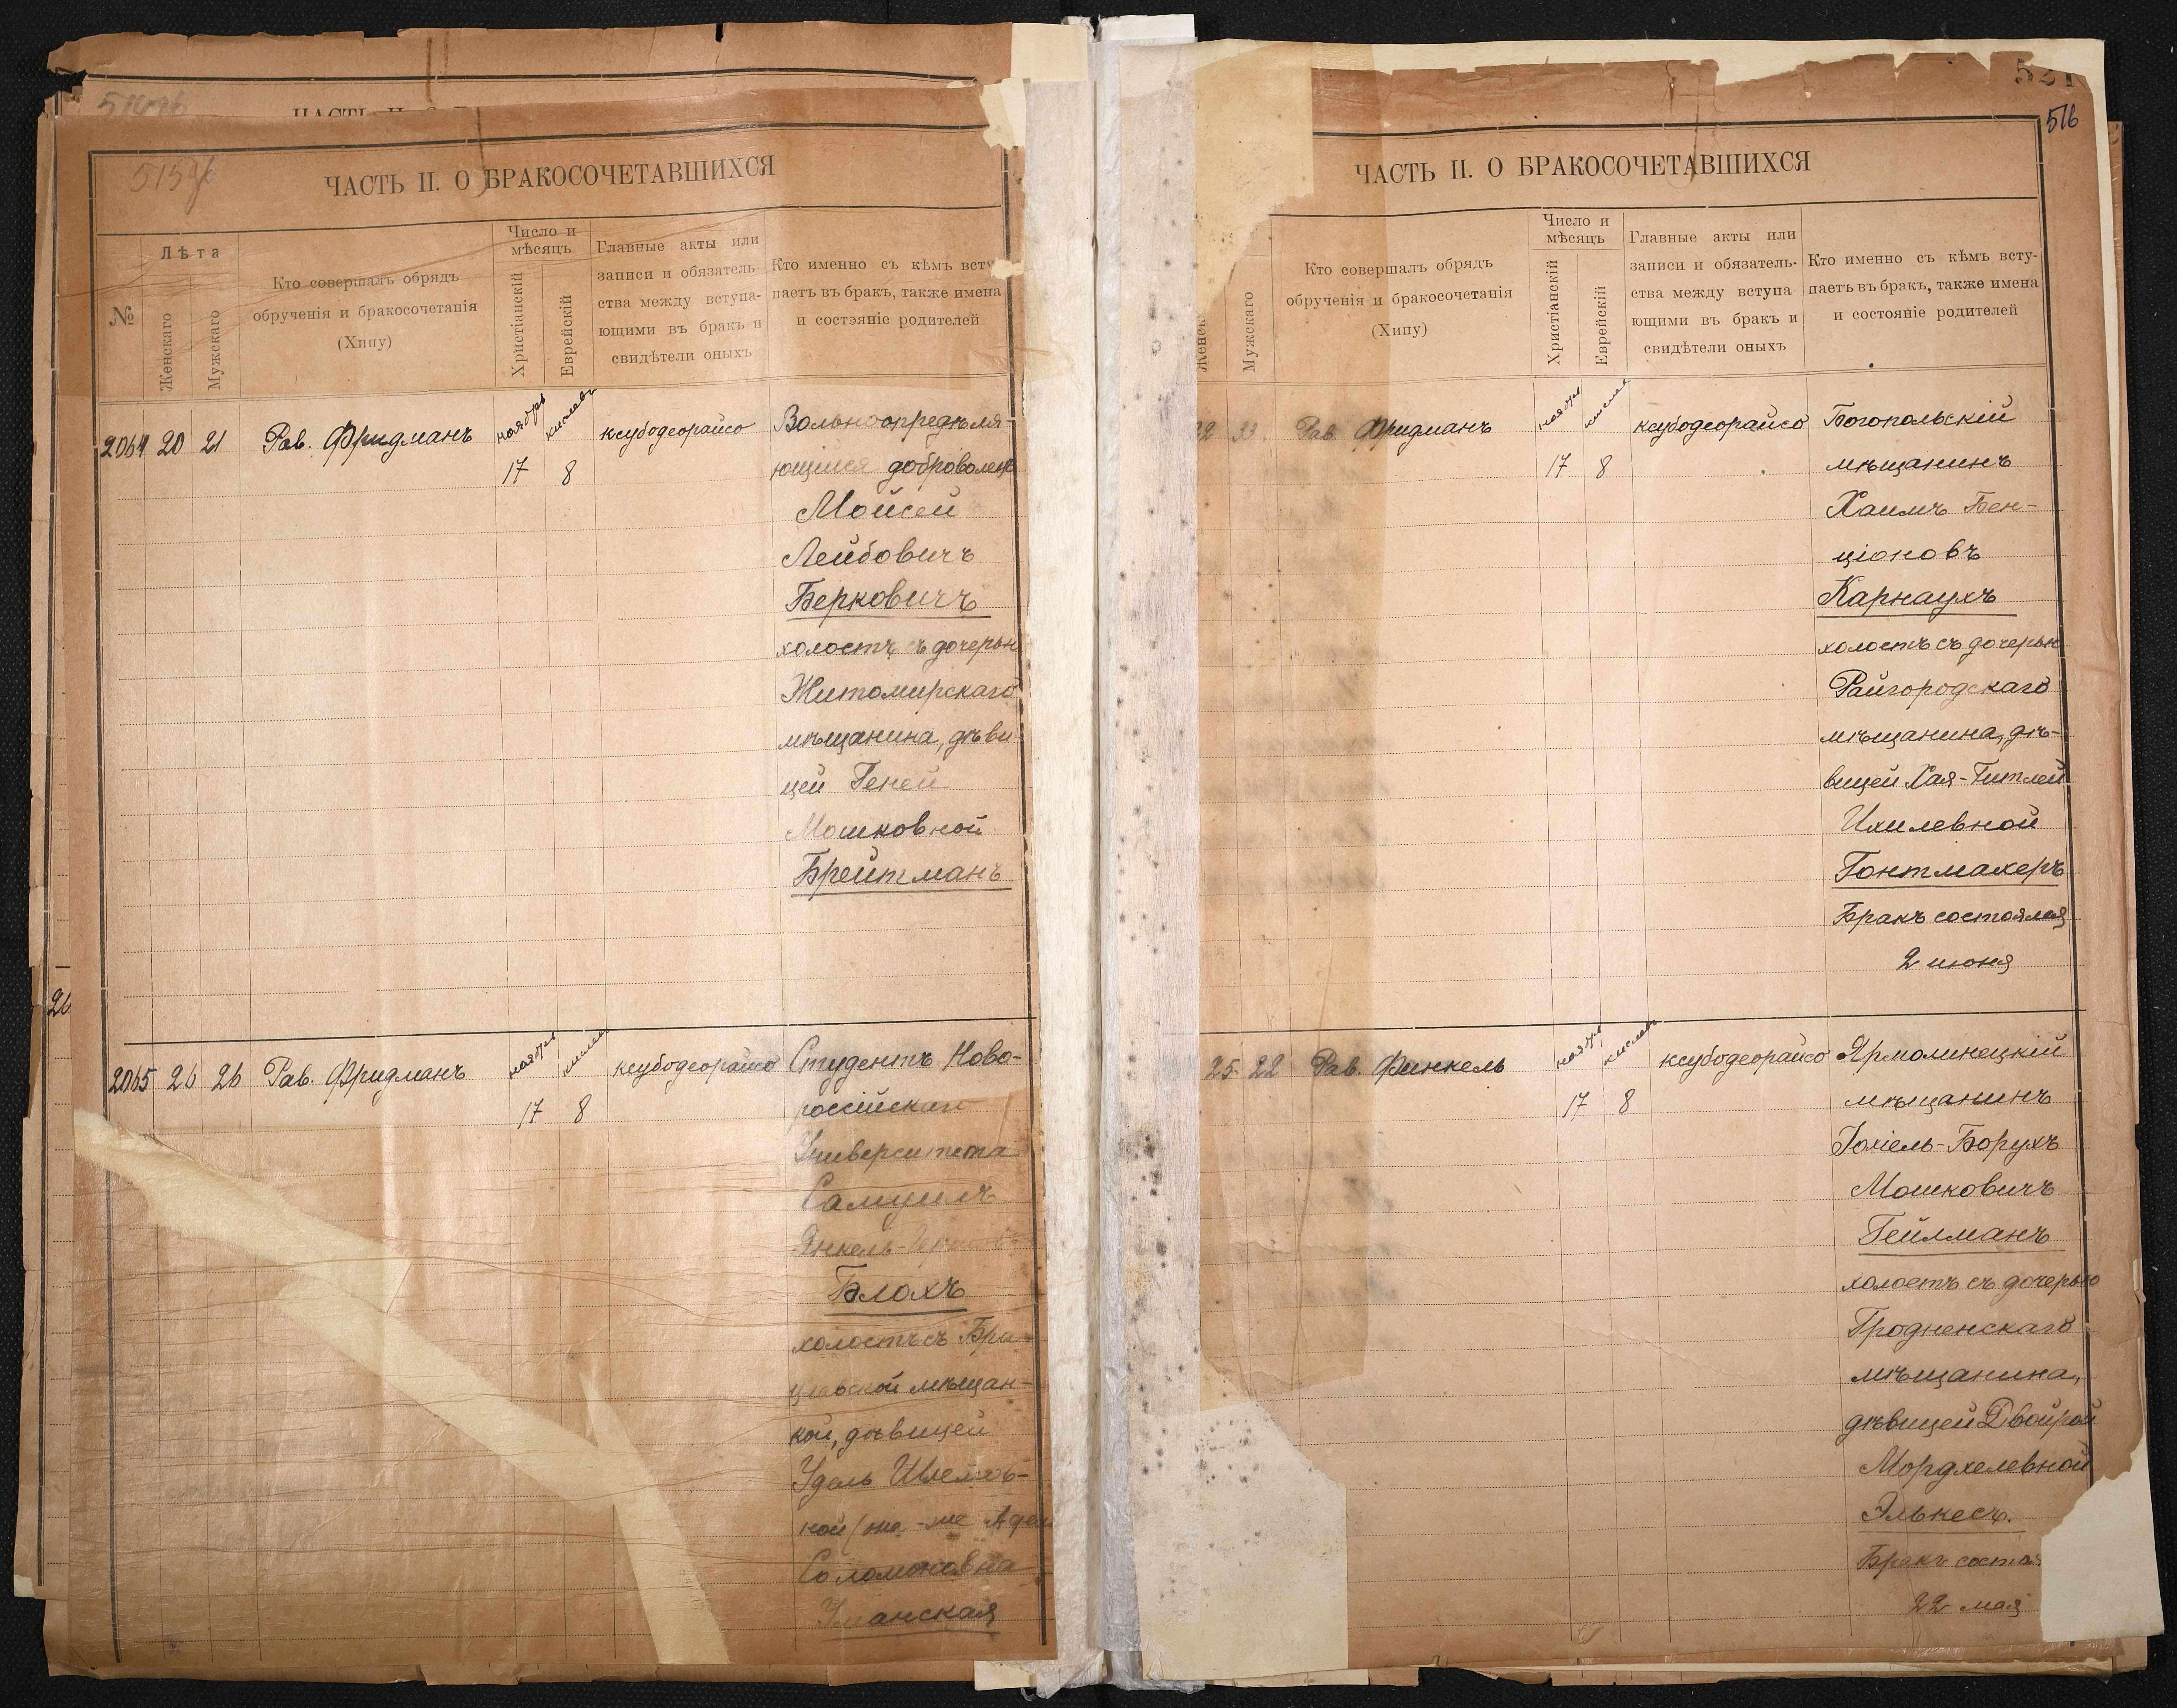 515
ЧАСТЬ II. О БРАКОСОЧЕТАВШИХСЯ
№
Лѣта
Женскаго
Мужскаго
Кто совершалъ обрядъ
обрученія и бракосочетанія
(Хипу)
Число и
мѣсяцъ
Христіанскій
Еврейскій
Главные акты или
записи и обязатель-
ства между вступа-
ющими въ бракъ и
свидѣтели оныхъ
Кто именно съ кѣмъ всту
паетъ въ бракъ, также имена
и состояніе родителей
2064 20 21 Рав. Фридманъ ноябрь кислевъ ксубодеорайсо Вольноопредѣля-
17 8 ющийся доброволец
Мойсей
Лейбовичъ
Берковичъ
холостъ съ дочерью
Житомирскаго
мѣщанина, дѣви
цей Геней
Мошковной
Брейтманъ
26
2065 26 26 Рав. Фридманъ ноябрь кислев ксубодеорайсо Студентъ Ново-
17 8 россійскаго
Университета
Самуилъ
Янкель
Блохъ
холостъ съ Бра
цлавской мѣщан-
кой, дѣвицей
Удель Шлемов-
ной (она-же Адел
Соломоновна
Уманская
521
516
ЧАСТЬ II. О БРАКОСОЧЕТАВШИХСЯ
Женск
Мужскаго
Кто совершалъ обрядъ
обрученія и бракосочетанія
(Хипу)
Число и
мѣсяцъ
Христіанскій
Еврейскій
Главные акты или
записи и обязатель-
ства между вступа
ющими въ бракъ и
свидѣтели оныхъ
Кто именно съ кѣмъ всту-
паетъ въ бракъ, также имена
и состояніе родителей
22 Рав. Фридманъ ноябрь кислев ксубодеорайсо Богопольскій
17 8 мѣщанинъ
Хаимъ Бен-
ціоновъ
Карнаухъ
холостъ съ дочерью
Райгородскаго
мѣщанина, дѣ-
вицей Хая-Гитлей
Ихилевной
Гонтмахеръ
Бракъ состоялся
2 июня
25 22 Рав. Финкель ноябрь кислев ксубодеорайсо Ярмолинецкій
17 8 мѣщанинъ
Іохіель-Борухъ
Мошковичъ
Гейлманъ
холостъ съ дочерью
Гродненскаго
мѣщанина,
дѣвицей Двойрой
Мордхелевной
Элькесъ.
Бракъ состоя
22 мая